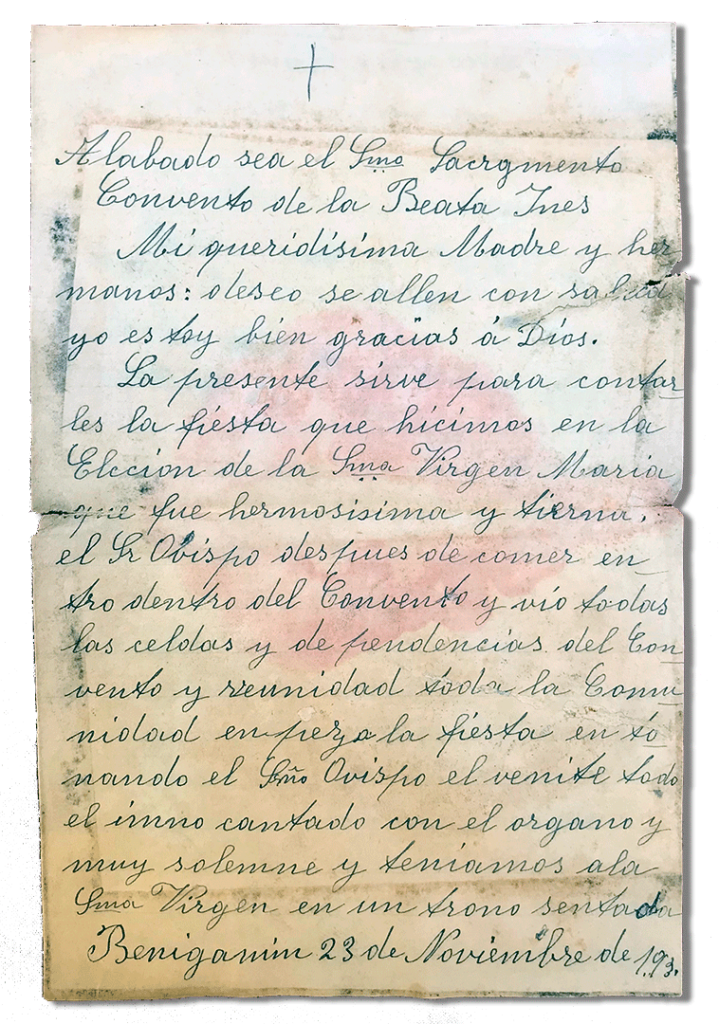 Alabado sea el Smo Sacrgmento
Convento de la Beata Ines
Mi queridísima Madre y her
manos: deseo se allen con salud
yo estoy bién gracias á Díos.
La presente sirve para contar
les la fiésta que hícímos en la
Elccion de la Sma Virgen Maria
que fue hermosisima y tierna.
el Sr Obispo despues de comer en
tro dentro del Convento y vío todas
las celdas y de pendencías del Con
vento y reunidad toda la Comu
nidad en pezo la fiésta en to
nando el Sño Ovispo el venite todo
el imno cantado con el organo y
muy solemne y teniamos ala
Sma Virgen en un trono sentada
Beniganim 23 de Noviembre de 193.